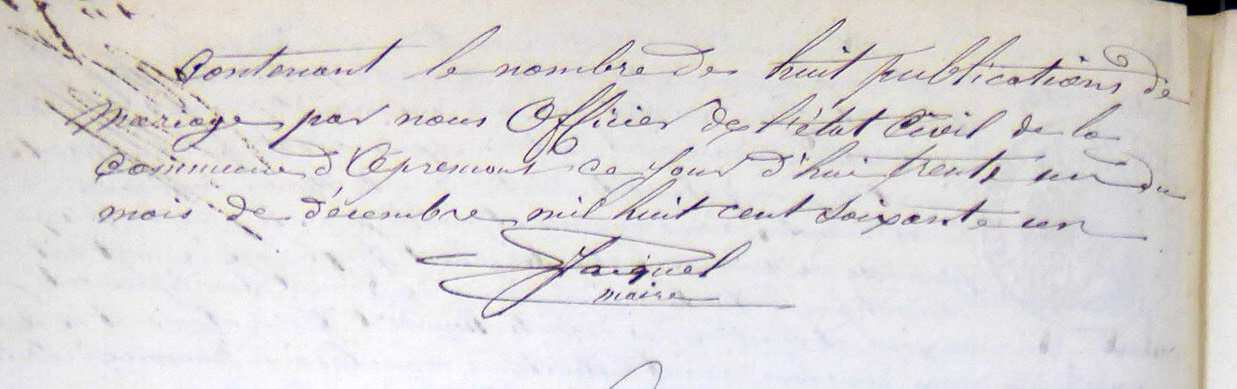 Contenant le nombre de huit publications de
mariages par nous Officier de l'état Civil de la
commune d'Apremont ce jour d'hui trente un du
mois de décembre mil huit cent soixante un
Jaiquel
maire